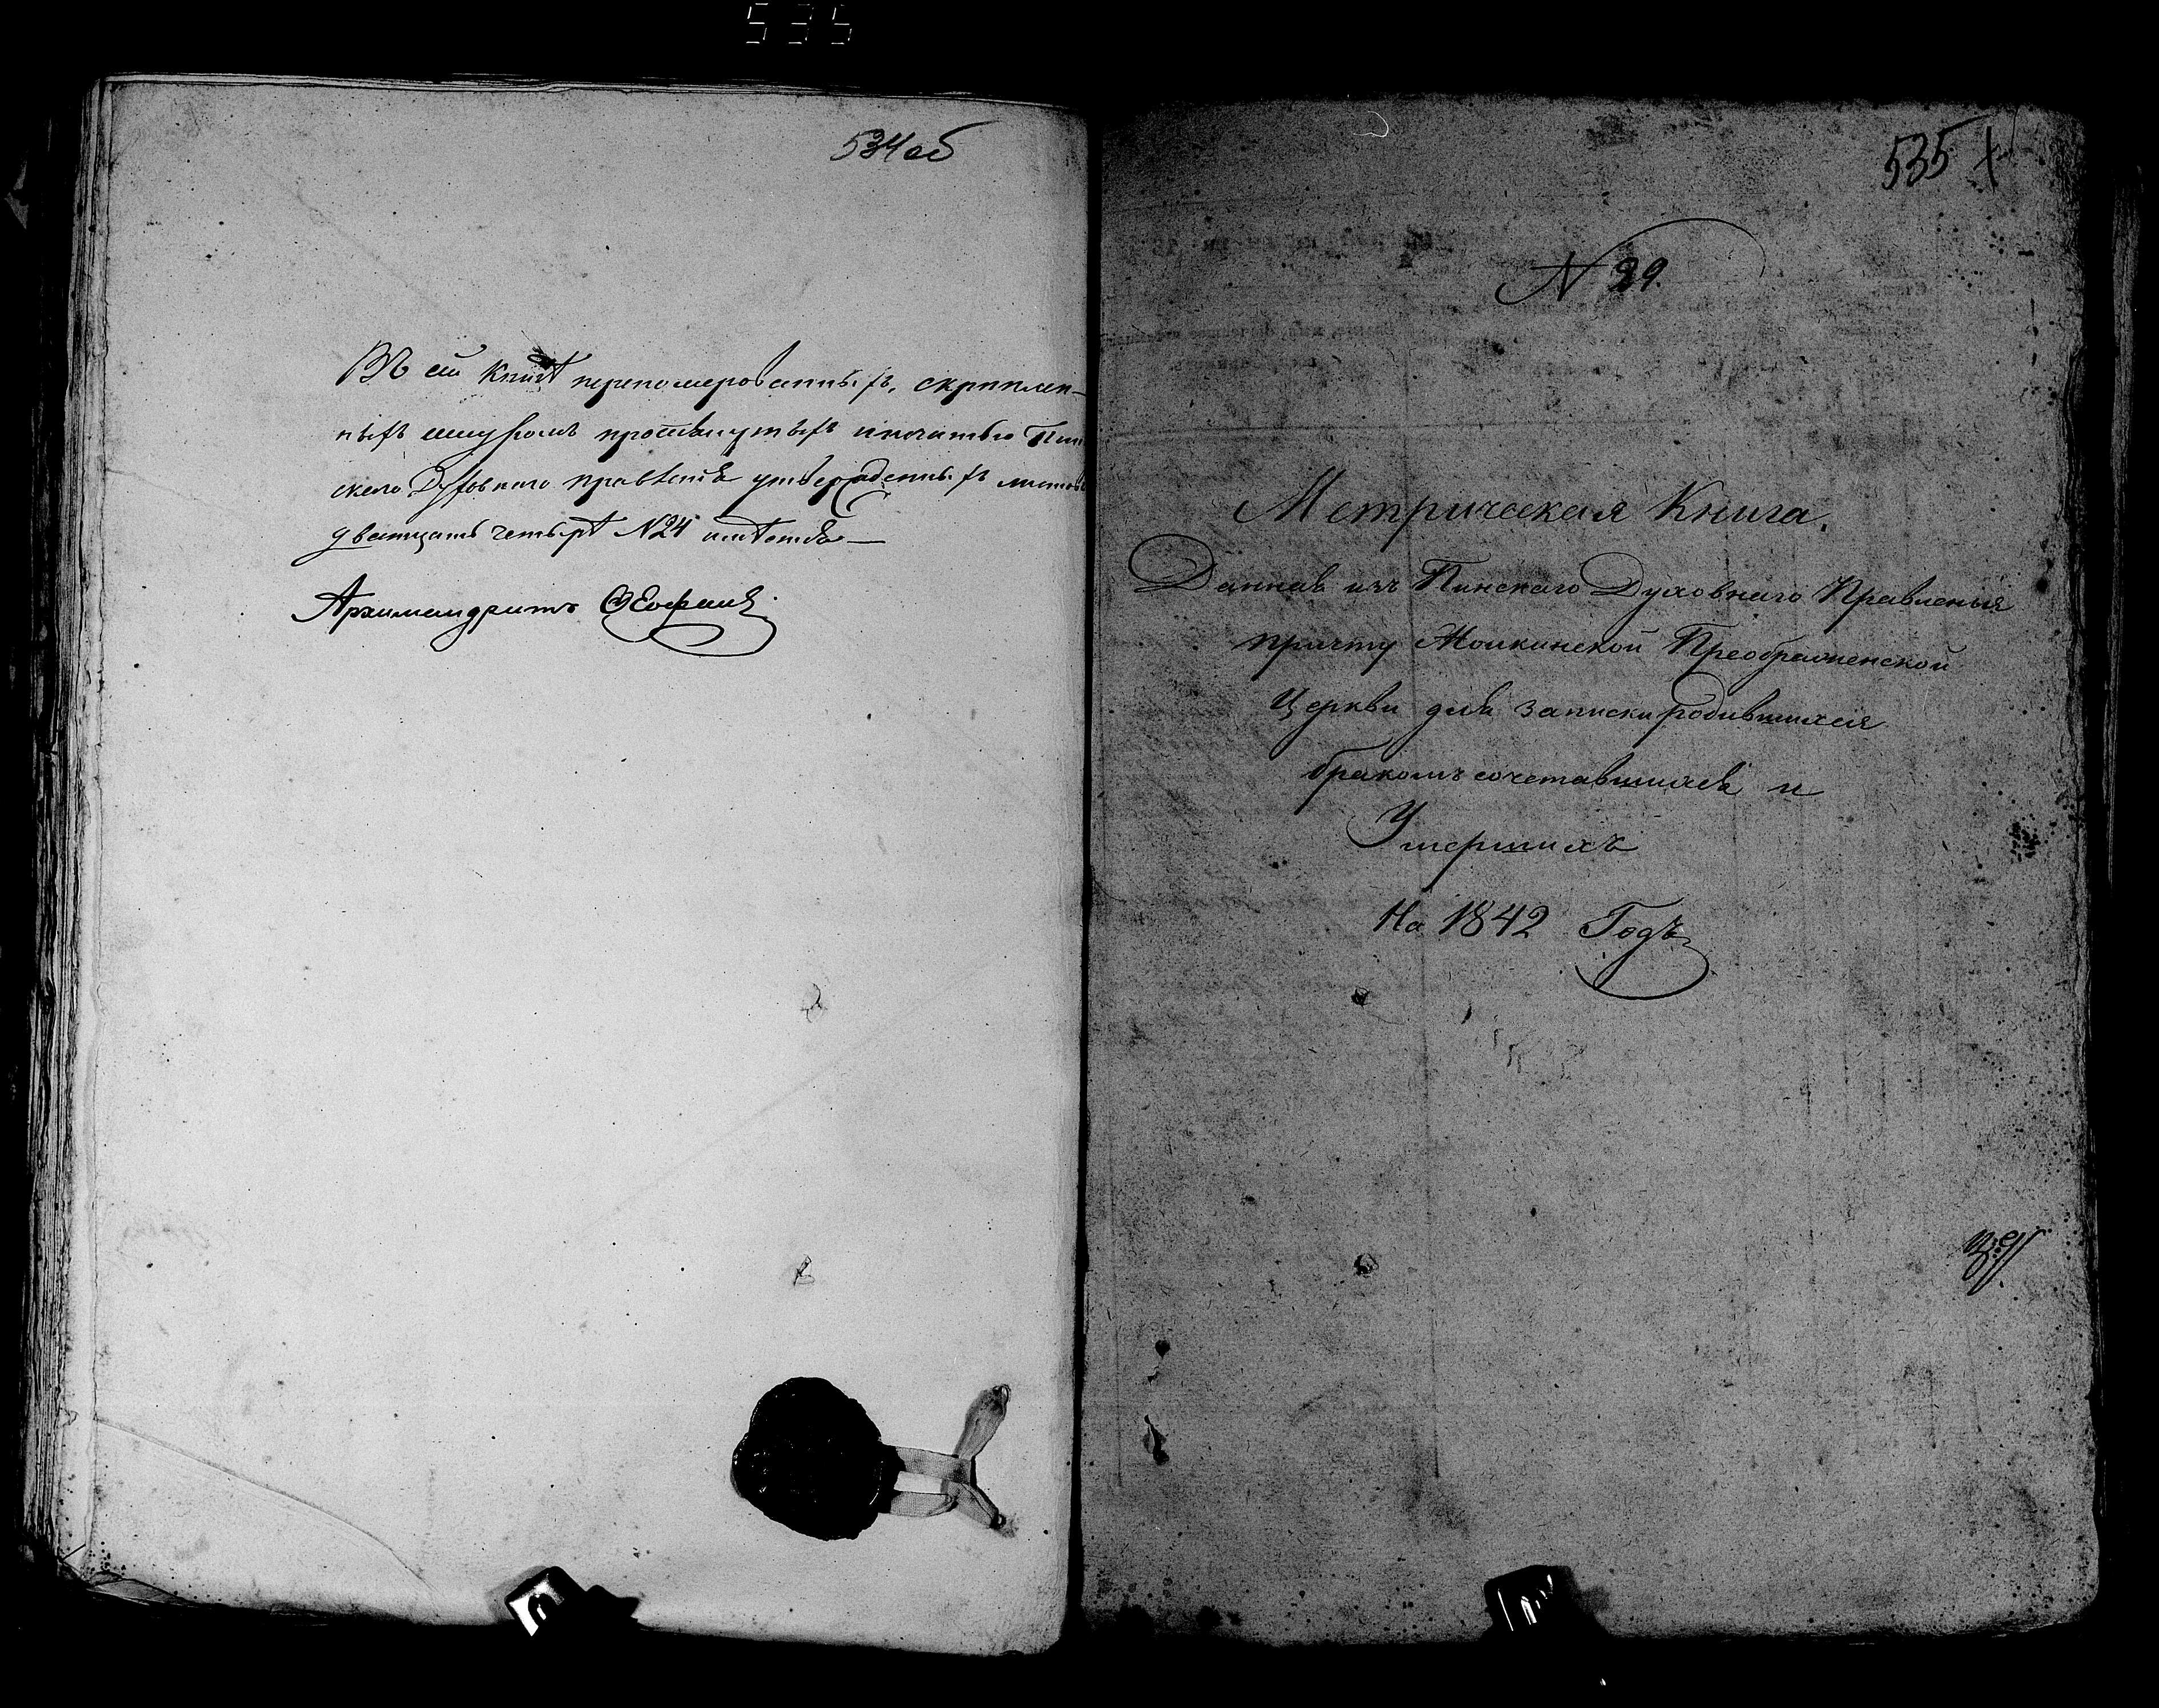 535
534 об
Въ сей Книгѣ перепомерованныхъ, скрѣплен-
ныхъ шнуромъ протянутыхъ и печатью Пин
скаго Духовнаго правленія утвержденныхъ листовъ
дватцать четырѣ N24 имѣется
Архимандритъ
535
N 29.
Метрическая Книга.
Данная изъ Пинскаго Духовнаго Правленія
причту Молкинской Преображенской
Церкви для записки родившихся
бракомъ сочетавшихся и
Умершихъ
На 1842 Годъ